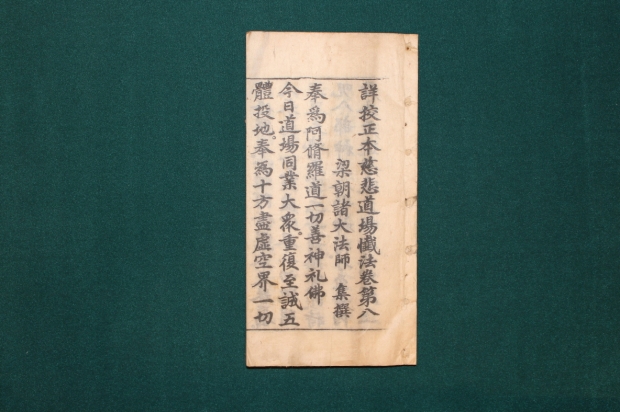 詳挍正本慈悲道場懺法卷第八
梁朝諸大法師 集撰
奉爲阿脩羅道一切善神礼佛
今日道場同業大衆。重復至誠五
體投地。奉爲十方盡虛空界一切